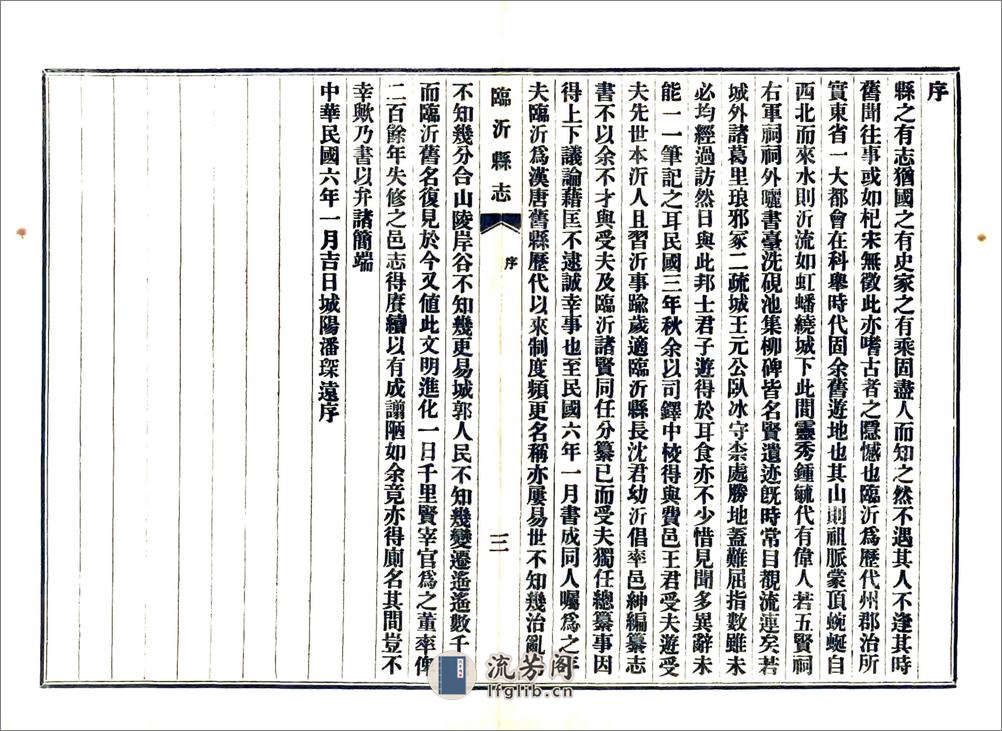 序
縣之有志猶國之有史家之有乘固盡人而知之然不遇其人不逢其時
舊聞往事或如杞宋無徵此亦嗜古者之隱憾也臨沂爲歷代州郡治所
實東省一大都會在科舉時代固余舊遊地也其山則祖脈蒙頂蜿蜒自
西北而來水則沂流如虹蟠繞城下此間靈秀鍾毓代有偉人若五賢祠
右軍祠祠外曬書臺洗硯池集柳碑皆名賢遺迹旣時常目覩流連矣若
城外諸葛里琅邪冢二疏城王元公臥冰守柰處勝地蓋難屈指數雖未
必均經過訪然日與此邦士君子遊得於耳食亦不少惜見聞多異辭未
能一一筆記之耳民國三年秋余以司鐸中校得與費邑王君受夫遊受
夫先世本沂人且習沂事踰歲適臨沂縣長沈君幼沂倡率邑紳編纂志
書不以余不才與受夫及臨沂諸賢同任分纂已而受夫獨任總纂事因
得上下議論藉匡不逮誠幸事也至民國六年一月書成同人囑爲之序
夫臨沂爲漢唐舊縣歷代以來制度頻更名稱亦屢易世不知幾治亂
臨沂縣志
序
三
不知幾分合山陵岸谷不知幾更易城郭人民不知幾變遷遙遙數千
而臨沂舊名復見於今又值此文明進化一日千里賢宰官爲之董率俾
二百餘年失修之邑志得賡續以有成謭陋如余竟亦得廁名其間豈不
幸歟乃書以弁諸簡端
中華民國六年一月吉日城陽潘琛遠序
流芳阁
lfglib.cn